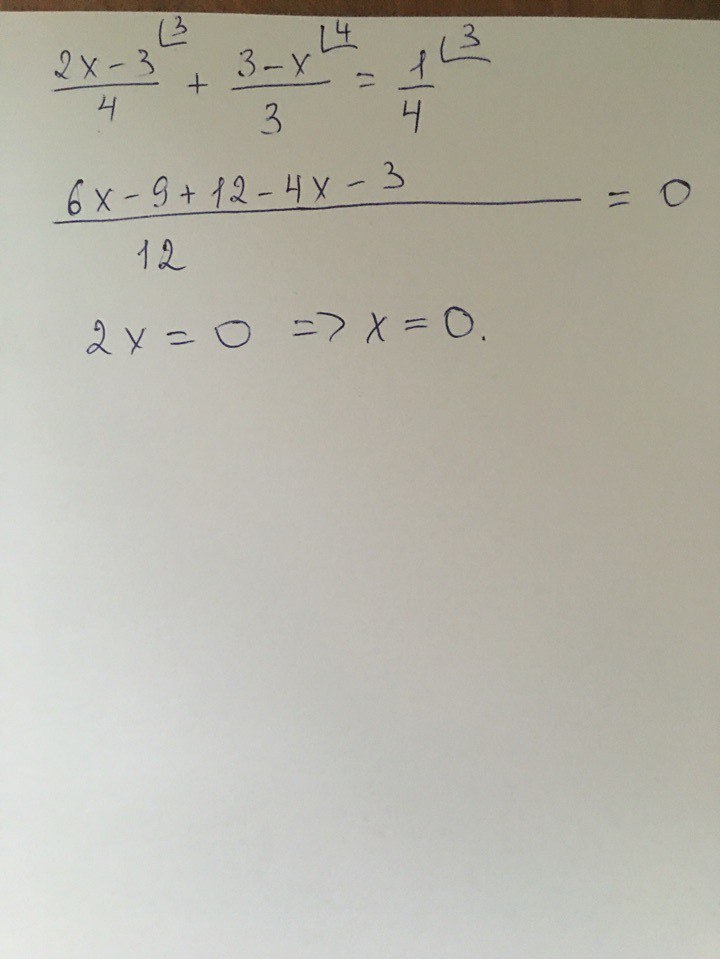 (2x - 3)/4 ⌊3 + (3 - x)/3 ⌊4 = 1/4 ⌊3
(6x - 9 + 12 - 4x - 3)/12 = 0
2x = 0 => x = 0.